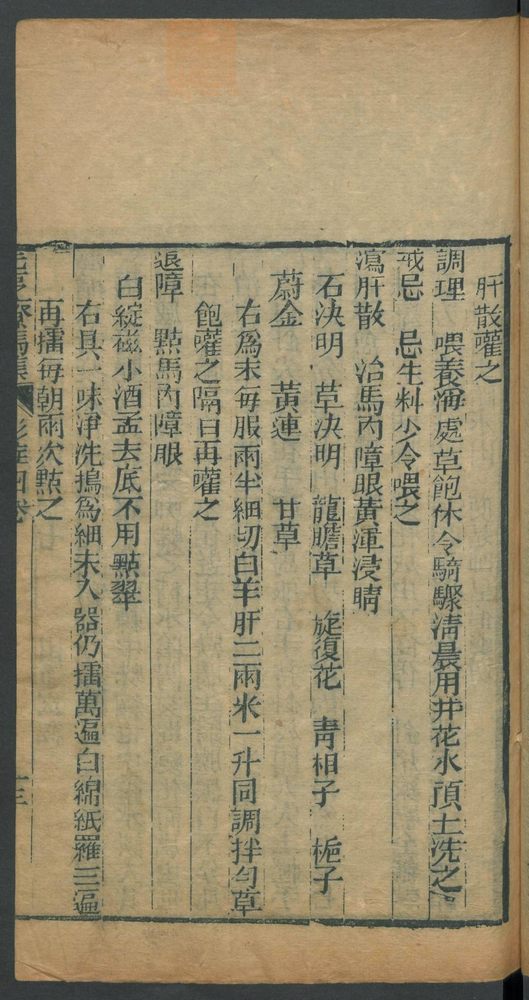 肝散嚾之
調理 喂養海處草飽休令騎驟清晨用井花水頂上洗之
戒忌 忌生料少令喂之
瀉肝散 治馬內障眼黃渾浸睛
石決明 草決明 龍膽草 旋復花 靑相子 梔子
蔚金 黃連 甘草
右爲末每服兩半細切白羊肝二兩米一升同調拌勻草
飽嚾之隔日再嚾之
退障 點馬內障眼
白綻磁小酒盃去底不用點翠
右具一味淨洗搗爲細末入器仍擂萬遍白綿紙羅三遍
再擂每朝兩次點之
元亨療馬集 卷 十三